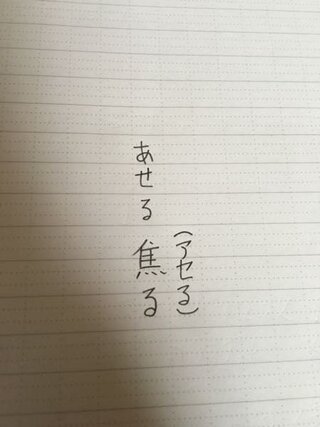 あせる 焦る
(アセる)